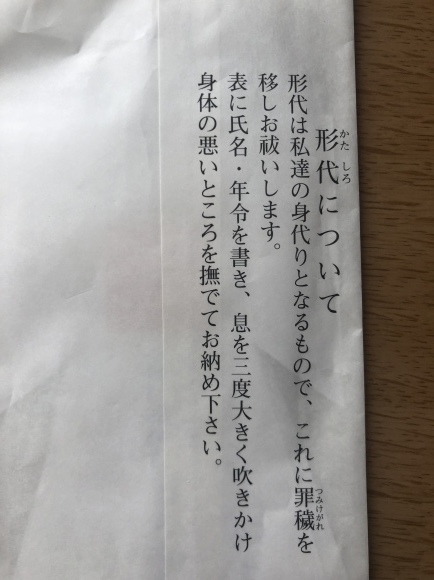 形代について
形代は私達の身代りとなるもので、これに罪穢を
移しお祓いします。
表に氏名・年令を書き、息を三度大きく吹きかけ
身体の悪いところを撫でてお納め下さい。
かた しろ
つみけがれ